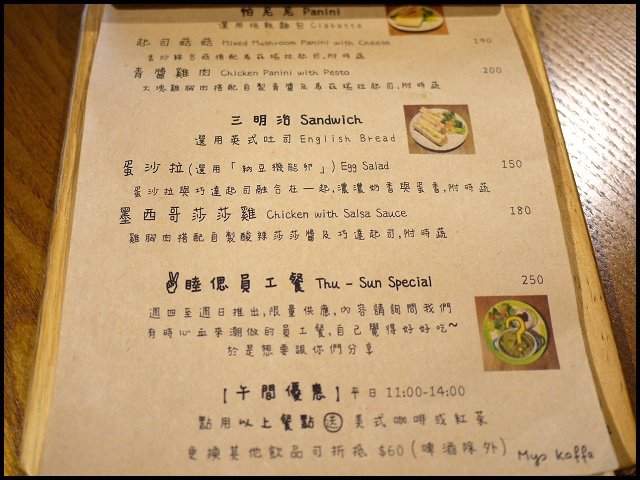 帕尼尼 Panini
選用拖鞋麵包 Ciabatta
起司菇菇 Mixed Mushroom Panini with Cheese 190
香炒綜合菇搭配馬茲瑞拉起司,附時蔬
青醬雞肉 Chicken Panini with Pesto 200
大塊雞胸肉搭配自製青醬及馬茲瑞拉起司,附時蔬
三明治 Sandwich
選用英式吐司 English Bread
蛋沙拉(選用「納豆機能卵」) Egg Salad 150
蛋沙拉與巧達起司融合在一起,濃濃奶香與蛋香,附時蔬
墨西哥莎莎雞 Chicken with Salsa Sauce 180
雞胸肉搭配自製酸辣莎莎醬及巧達起司,附時蔬
✌睦偲員工餐 Thu - Sun Special 250
週四至週日推出,限量供應,內容請詢問我們
有時心血來潮做的員工餐,自己覺得好好吃~
於是想要跟你們分享
【午間優惠】平日 11:00-14:00
點用以上餐點送美式咖啡或紅茶
更換其他飲品可折抵 $60 (啤酒除外)
Myo kaffe